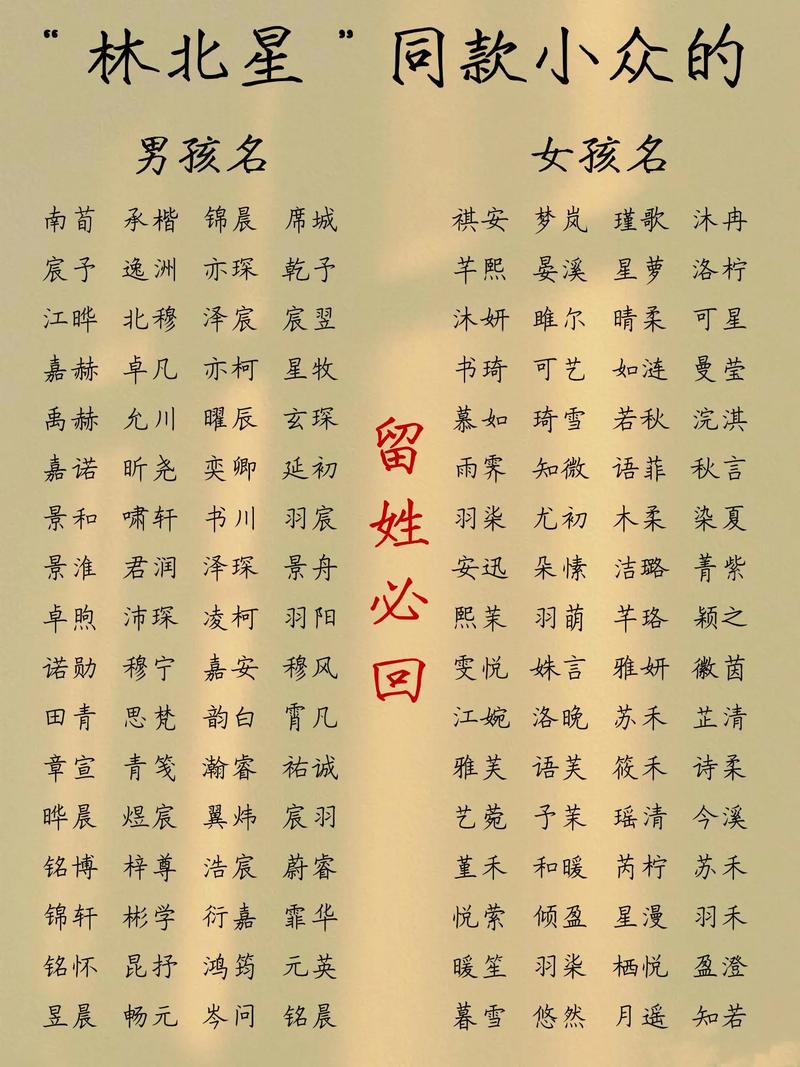 “林北星”同款小众的
男孩名
南荀 承楷 锦晨 席城
宸予 逸洲 亦琛 乾予
江晔 北穆 泽宸 宸翌
嘉赫 卓凡 亦柯 星牧
禹赫 允川 曜辰 玄琛
嘉诺 昕尧 奕卿 延初
景和 啸轩 书川 羽宸
景淮 君润 泽琛 景舟
卓煦 沛琛 凌柯 羽阳
诺勋 穆宁 嘉安 穆风
田青 思梵 韵白 霄凡
章宣 青笺 瀚睿 祐诚
晔晨 煜宸 翼炜 宸羽
铭博 梓尊 浩宸 蔚睿
锦轩 彬学 衍嘉 霏华
铭怀 昆抒 鸿筠 元英
昱晨 畅元 岑问 铭晨
留姓必回
女孩名
祺安 梦岚 瑾歌 沐冉
芊熙 晏溪 星萝 洛柠
沐妍 雎尔 晴柔 可星
书琦 可艺 如涟 曼莹
慕如 琦雪 若秋 浣淇
雨霁 知微 语菲 秋言
羽柒 尤初 木柔 染夏
安迅 朵愫 洁璐 菁紫
熙茉 羽萌 芊珞 颖之
雯悦 姝言 雅妍 徽茵
江婉 洛晚 苏禾 芷清
雅芙 语芙 筱禾 诗柔
艺菀 予茉 瑶清 今溪
堇禾 和暖 芮柠 苏禾
悦萦 倾盈 星漫 羽禾
暖笙 羽柒 栖悦 盈澄
暮雪 悠然 月遥 知若